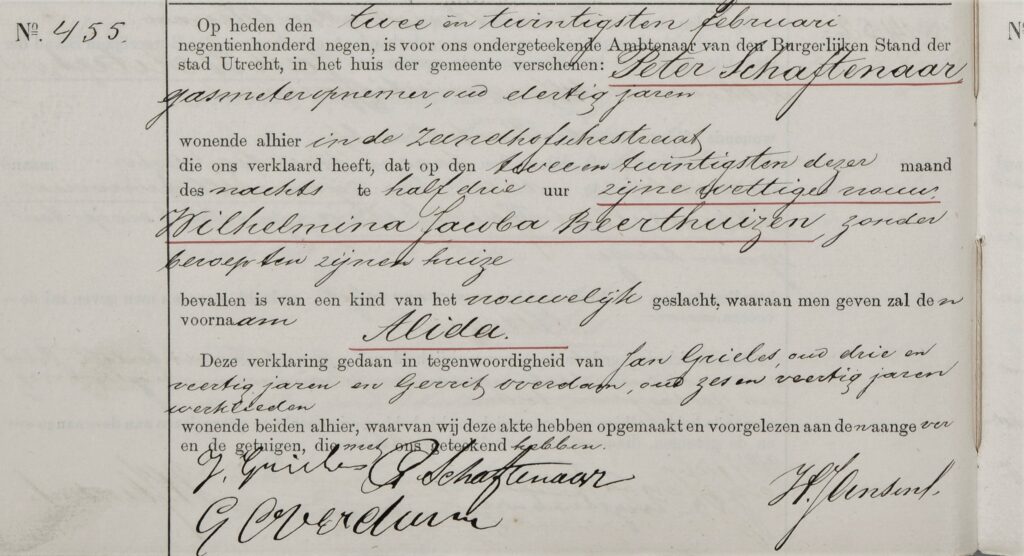 Nº. 455. Op heden den twee en twintigsten februari
negentienhonderd negen, is voor ons ondergeteekende Ambtenaar van den Burgerlijken Stand der
stad Utrecht, in het huis der gemeente verschenen: Peter Schaftenaar
gasmeteropnemer, oud dertig jaren
wonende alhier in de Zandhofschestraat
die ons verklaard heeft, dat op den twee en twintigsten dezer maand
des nachts te half drie uur zijne wettige vrouw,
Wilhelmina Jacoba Beerthuizen, zonder
beroep ten zijnen huize
bevallen is van een kind van het vrouwelijk geslacht, waaraan men geven zal den
voornaam
Alida.
Deze verklaring gedaan in tegenwoordigheid van Jan Grieles, oud drie en
veertig jaren en Gerrit Overdam, oud zes en veertig jaren
werklieden
wonende beiden alhier, waarvan wij deze akte hebben opgemaakt en voorgelezen aan den aangever
en de getuigen, die met ons geteekend hebben.
J. Grieles P Schaftenaar
G Overdam
Nº